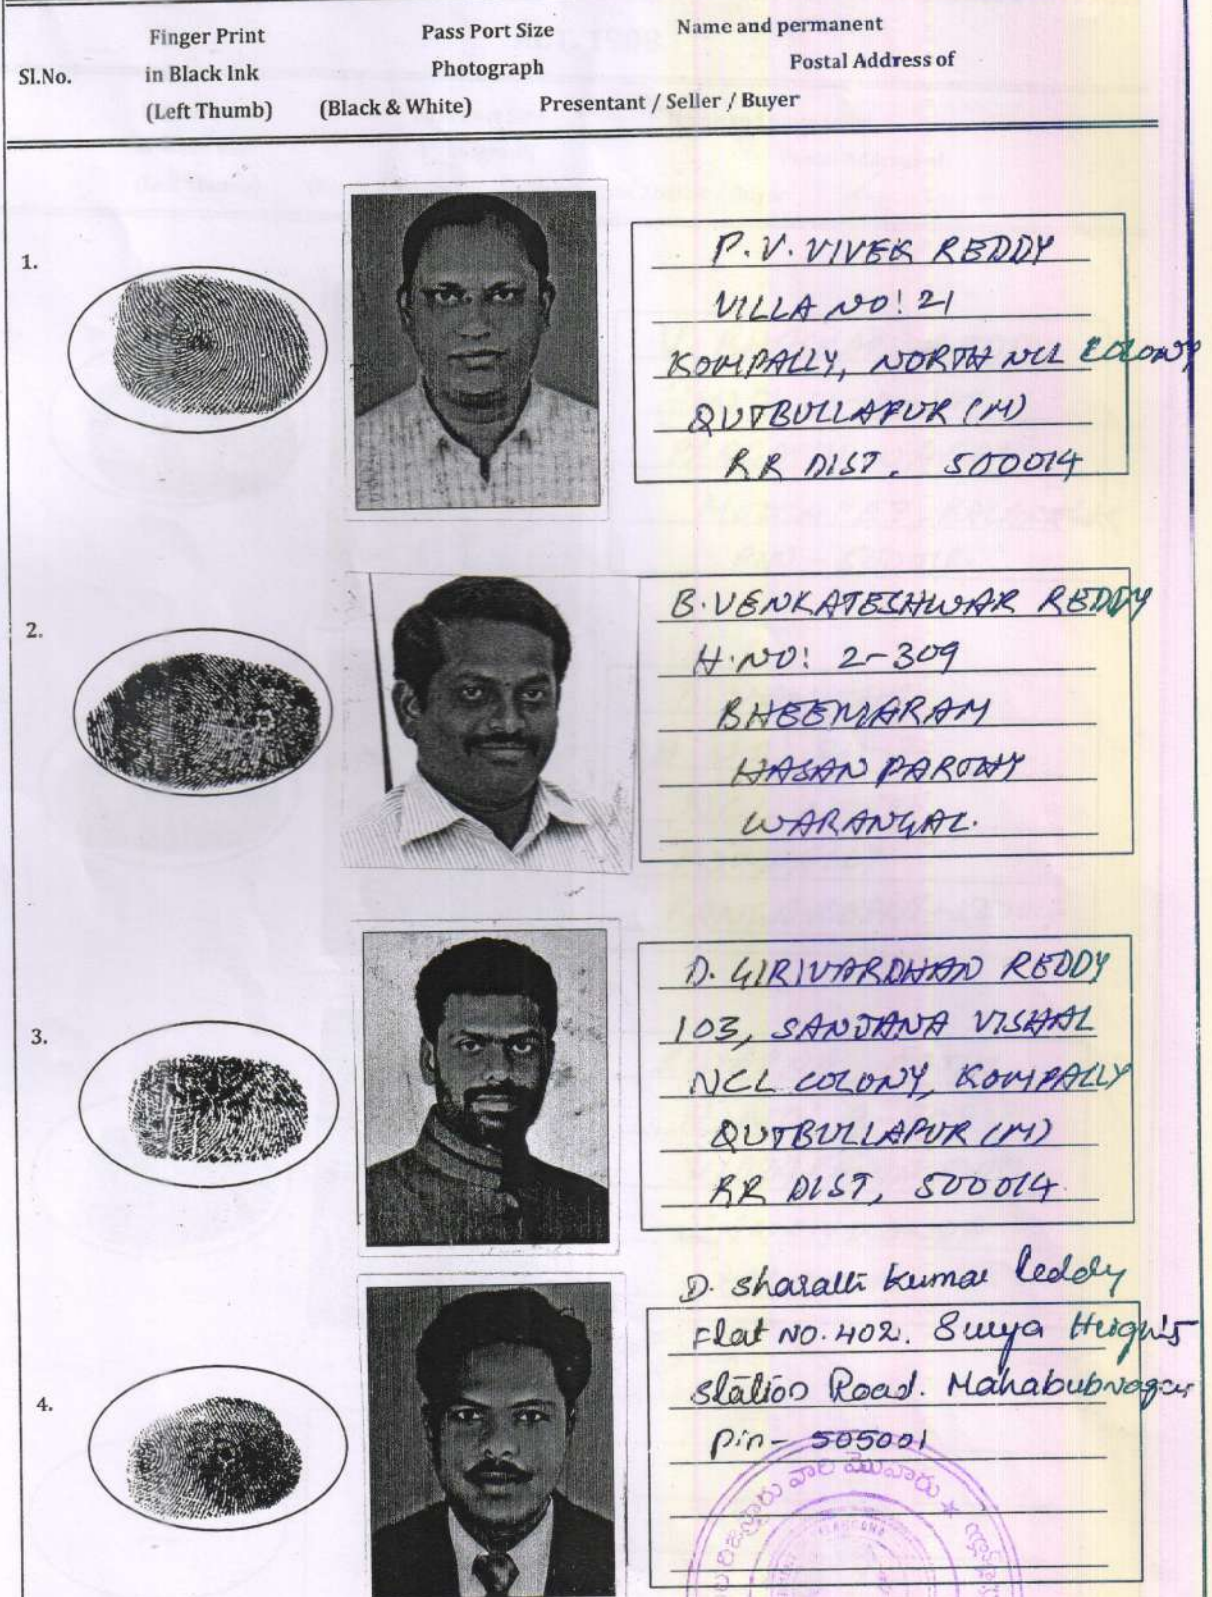 Sl.No.
Finger Print
in Black Ink
(Left Thumb)
Pass Port Size
Photograph
(Black & White)
Name and permanent
Postal Address of
Presentant / Seller / Buyer
1.
P.V. VIVEK REDDY
VILLA NO: 21
KOMPALLY, NORTH NCL COLONY
QUTBULLAPUR (M)
RR DIST. 500014
2.
B. VENKATESHWAR REDDY
H.NO: 2-309
BHEEMARAM
HASAN PARTHY
WARANGAL.
3.
D. GIRIVARDHAN REDDY
103, SANJANA VISHAL
NCL COLONY, KOMPALLY
QUTBULLAPUR (M)
RR DIST, 500014
4.
D. Sharath Kumar Reddy
Flat NO. 402. Surya Heights
Station Road. Mahabubnagar
Pin- 505001